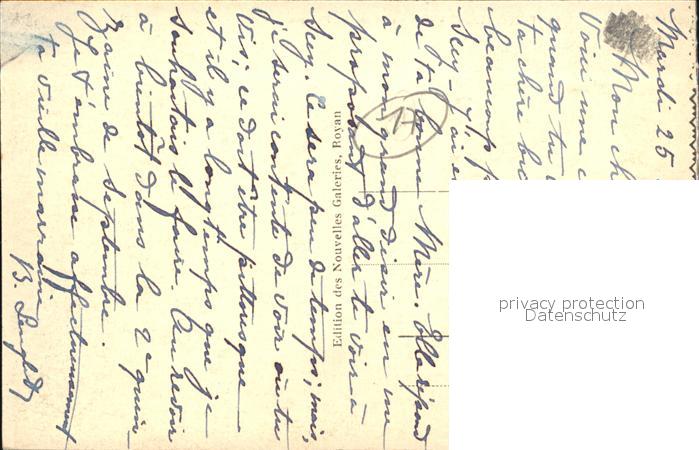 Mardi 25
Mon ch
Voici une c
quand tu
ta chère
beaucoup
Sucy - j'ai e
de ta bonne Mère. Elle répond
à mon grand désir en me
proposant d'aller te voir à
Sucy. Ce sera peu de temps, mais,
je serai contente de voir où tu
vis; ce doit être pittoresque
et il y a longtemps que je
souhaitais le faire. Au revoir
à bientôt dans la 2e quin-
zaine de Septembre.
Je t'embrasse affectueusement
ta vieille marraine
B.
17
Edition des Nouvelles Galeries, Royan
privacy protection
Datenschutz